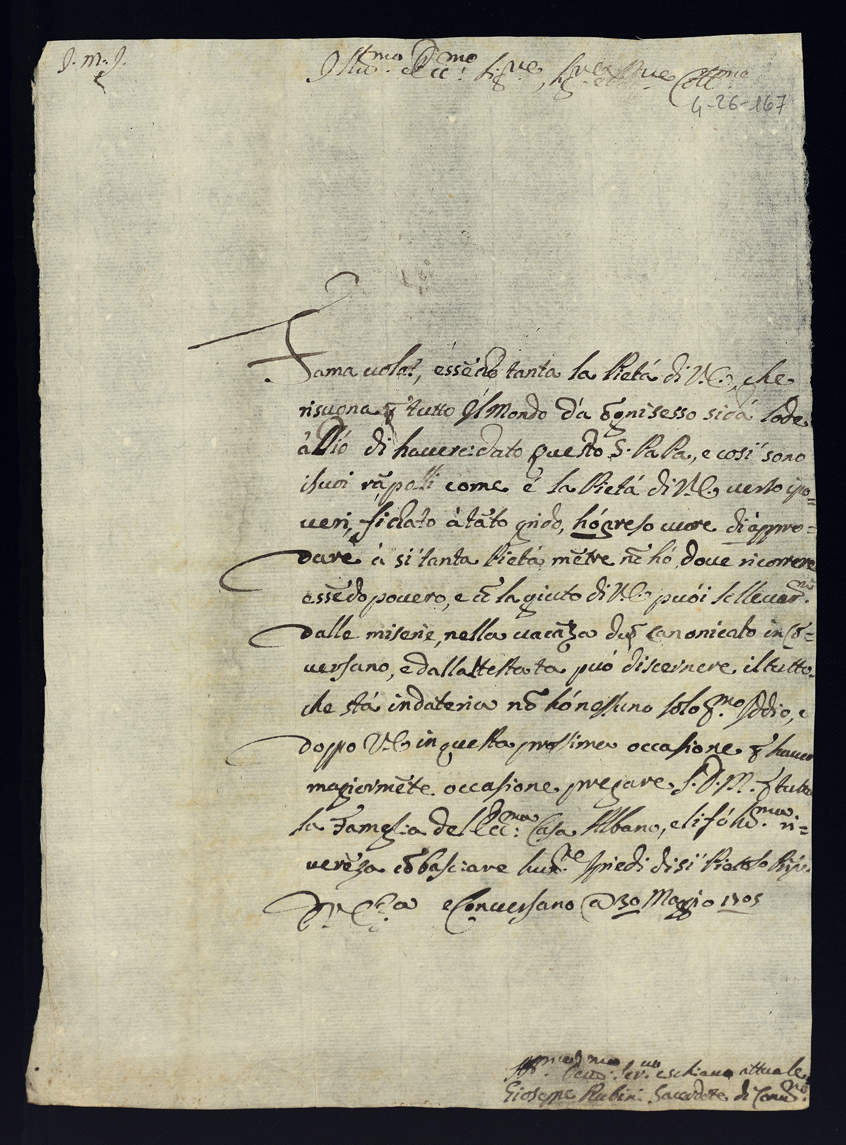 J. M. J.
Ill.mo Ecc.mo Sig.re, Sig.re e P'rone Coll.mo
4-26-167
Fama volat, essēdo tanta la Pietá di V.E., che
risuona ꝑ tutto il Mondo d'a ogni sesso si dá lode
á Dió di haverci dato questo S. PaPa, e cosi sono
i suoi rāpolli come é la Pietá di V.E. verso i po=
veri, fidato á tāto grido, hó preso cuore di appro=
dare á si tanta Pietá, mētre nō hó, dove ricorrere
essēdo povero, e cō la giuto di V.E. puói sellevar.mi
dalle miserie, nella vacāza d'ū Canonicato in Cō=
versano, e dallattestata puó discernere il tutto
che stá in dateria nō hó nessuno solo ꝑ.mo Iddio, e
doppo V.E. in questa prossima occasione ꝑ haver
magiormēte occasione pregare S.D.M. ꝑ tutta
la Fameglia dell'Ecc.ma Casa Albano, e li fó hu.ma ri=
verēza cō basciare hum.te i piedi di si Pietoso
D. V. Ecc.a e Conversano a 30 Magio 1705
Hu.mo Devo.mo Ser.vo e schiavo attuale
Gioseppe Rubini Sacerdote di Conv.no